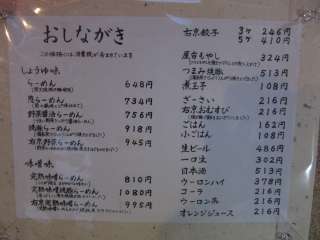 おしながき
しょうゆ味
らーめん 648円
734円
野菜醤油らーめん 756円
焼豚らーめん 918円
右京野菜らーめん 945円
味噌味
完熟味噌らーめん 810円
完熟味噌焼豚らーめん 1080円
完熟味噌右京らーめん 995円
右京餃子 3ヶ 246円
5ヶ 410円
屋台もやし 324円
つまみ焼豚 513円
煮玉子 108円
ざーさい 216円
右京おむすび 216円
ごはん 162円
小ごはん 108円
生ビール 486円
一口太 302円
日本酒 513円
ウーロンハイ 378円
コーラ 216円
ウーロン茶 216円
オレンジジュース 216円